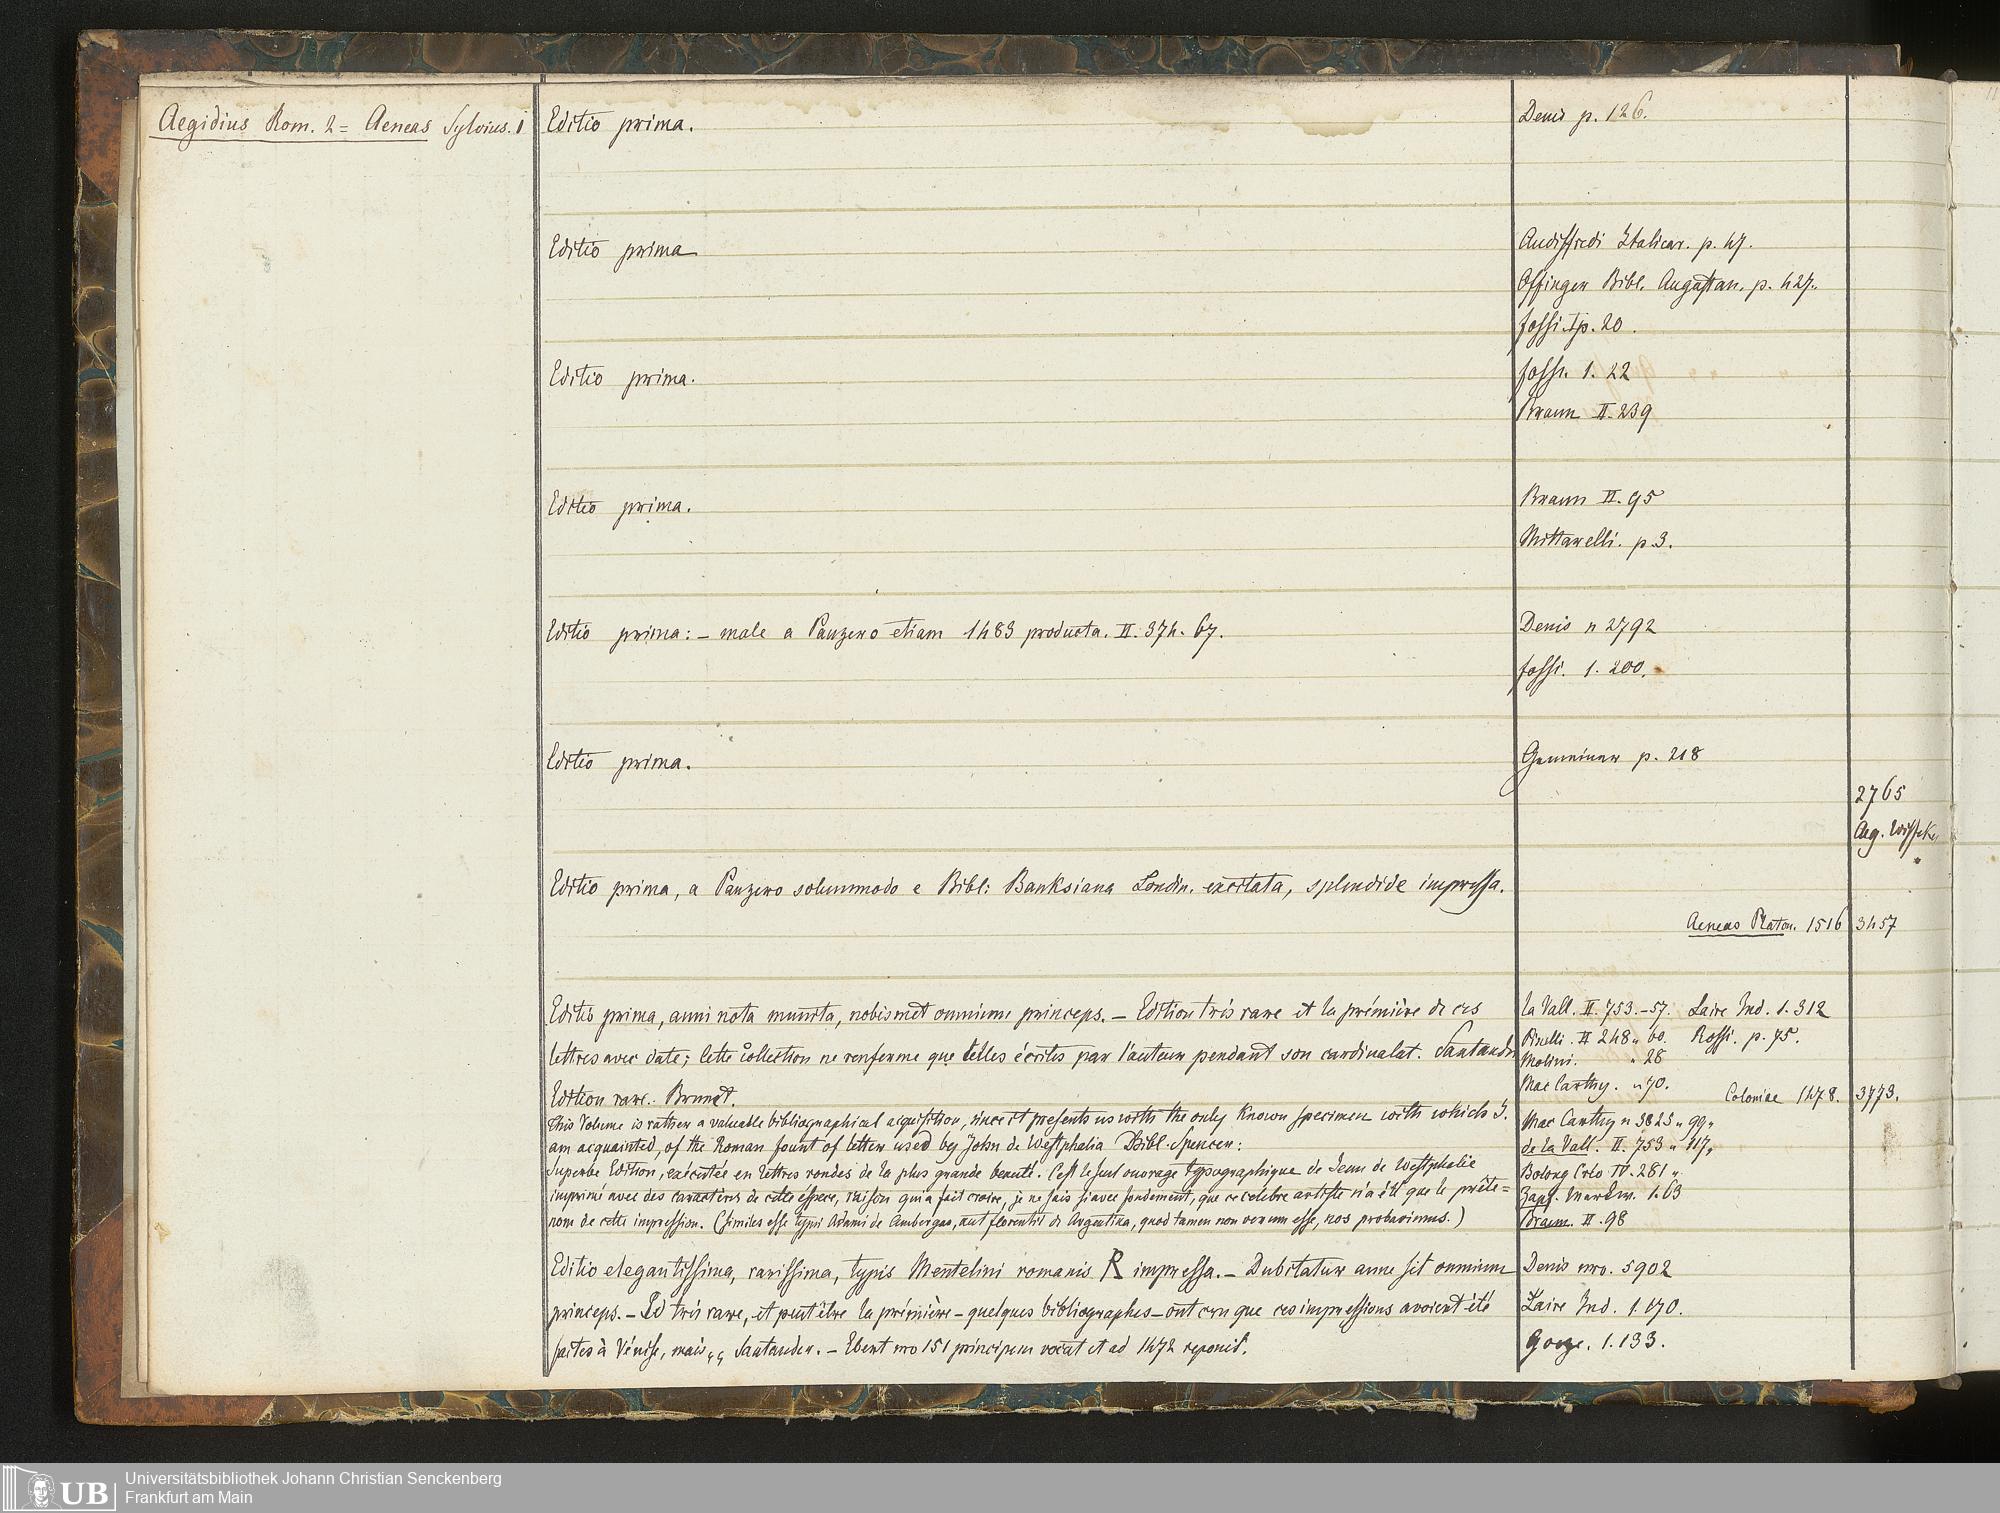 Aegidius Rom. 2 = Aeneas Sylvius. 1
Editio prima.
Denis p. 126.
Editio prima
Audiffredi Italicar. p. 47.
Bibl. Augustan. p. 427.
fossi. I p. 20.
Editio prima.
foss. 1. 22
Braun II. 239
Editio prima.
Braun II. 95
Mittarelli. p. 3.
Editio prima: – male a Panzero etiam 1483 producta. II. 374. 67.
Denis n 2792
fossi. 1. 200.
Editio prima.
Gemeiner p. 218
2765
Aeg.
Editio prima, a Panzero solummodo e Bibl: Banksiana Londin. excitata, splendide impressa.
Aeneas Platon. 1516 3457
Editio prima, anni nota munita, nobismet omnium princeps. – Edition très rare et la prémière de ces
lettres avec date; cette Collection ne renferme que celles écrites par l'auteur pendant son cardinalat. Santander
Edition rare. Brunet.
This Volume is rather a valuable bibliographical acquisition, since it presents us with the only known specimen with which I.
am acquainted, of the Roman fount of letter used by John de Westphalia Bibl. Spencer:
Superbe Edition, exécutée en lettres rondes de la plus grande beauté. C'est le seul ouvrage typographique de Jean de Westphalie
imprimé avec des caractères de cette éspece, raison qui a fait croire, je ne sais si avec fondement, que ce celebre artiste n'a été que le prête=
nom de cette impression. (Similes esse typi Adami de Ambergau, aut florentii de Argentina, quod tamen non verum esse, nos probavimus.)
la Vall. II. 753.–57. Laire Ind. 1. 312
Pinelli. II 248 " 60. Rossi. p. 75.
Molini. " 28
Mac Carthy. " 70.
Coloniae 1478. 3773.
Mac Carthy n 3825 " 99 "
de la Vall. II. 753 " 117 "
Bolong Crev IV. 281 "
Zapf. 1. 63
Braun. II. 98
Editio elegantissima, rarissima, typis Mentelini romanis R impressa. – Dubitatur anne sit omnium
princeps. – Ed très rare, et peut être la prémière – quelques bibliographes – ont cru que ces impressions avoient été
faites à Vénise, mais Santander. – Ebert nro 151 principem vocat et ad 1472 reponit.
Denis nro. 5902
Laire Ind. 1. 170.
Goeze. 1. 133.
UB
Universitätsbibliothek Johann Christian Senckenberg
Frankfurt am Main